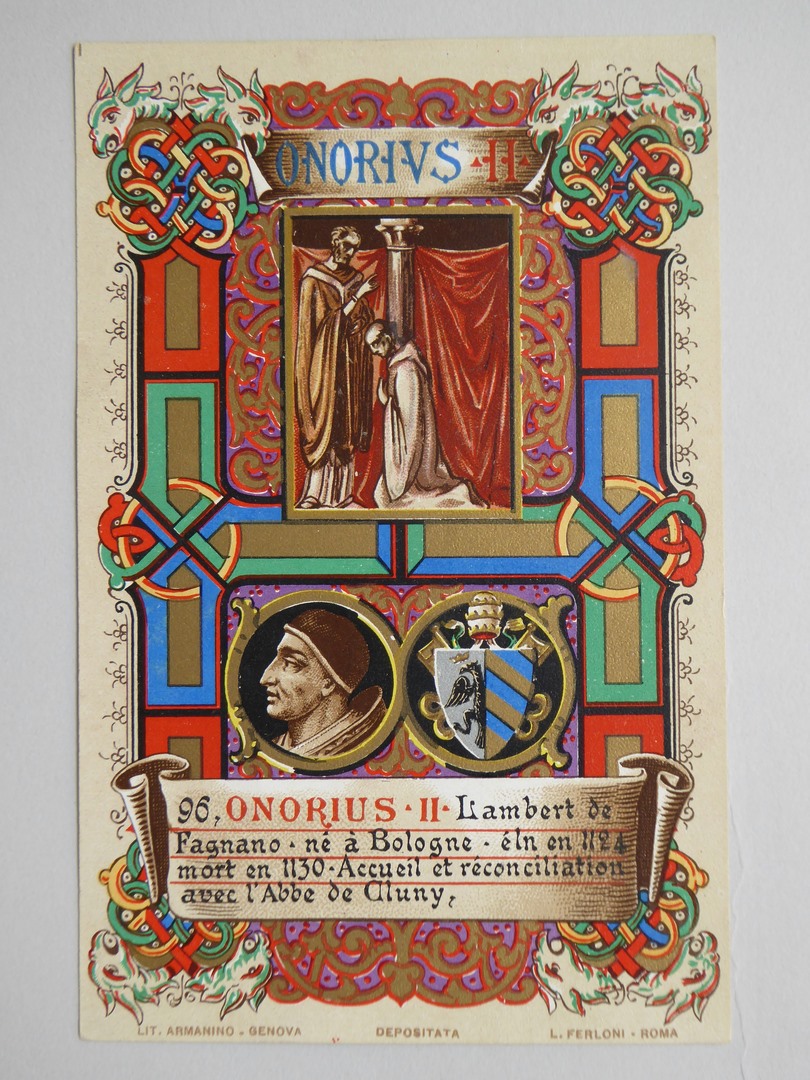 ONORIVS · II ·
96, ONORIUS · II · Lambert de
Fagnano · né à Bologne · éln en 1124
mort en 1130 · Accueil et réconciliation
avec l'Abbe de Cluny,
LIT. ARMANINO - GENOVA DEPOSITATA L. FERLONI - ROMA